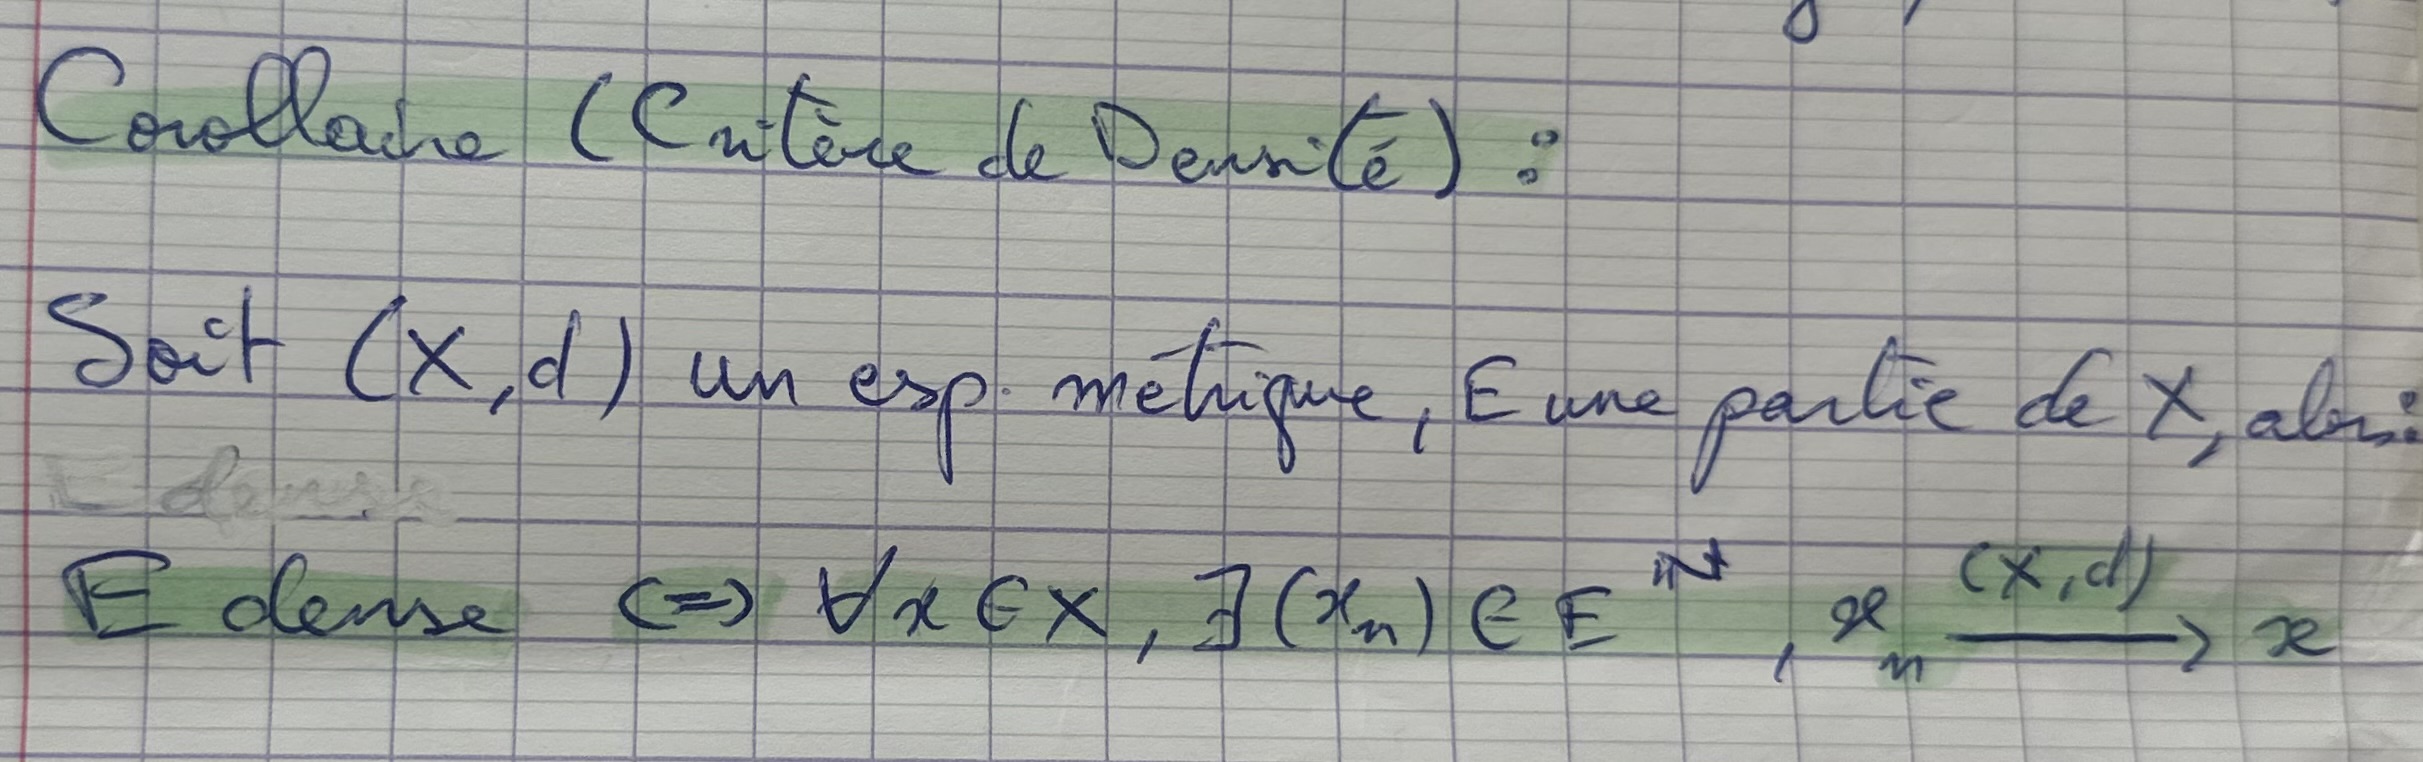 Corollaire (Critère de Densité) :
Soit (X,d) un esp. métrique, E une partie de X, alors:
E dense
E dense <=> ∀x∈X, ∃(xₙ)∈E^ℕ, xₙ ⟶^(X,d) x